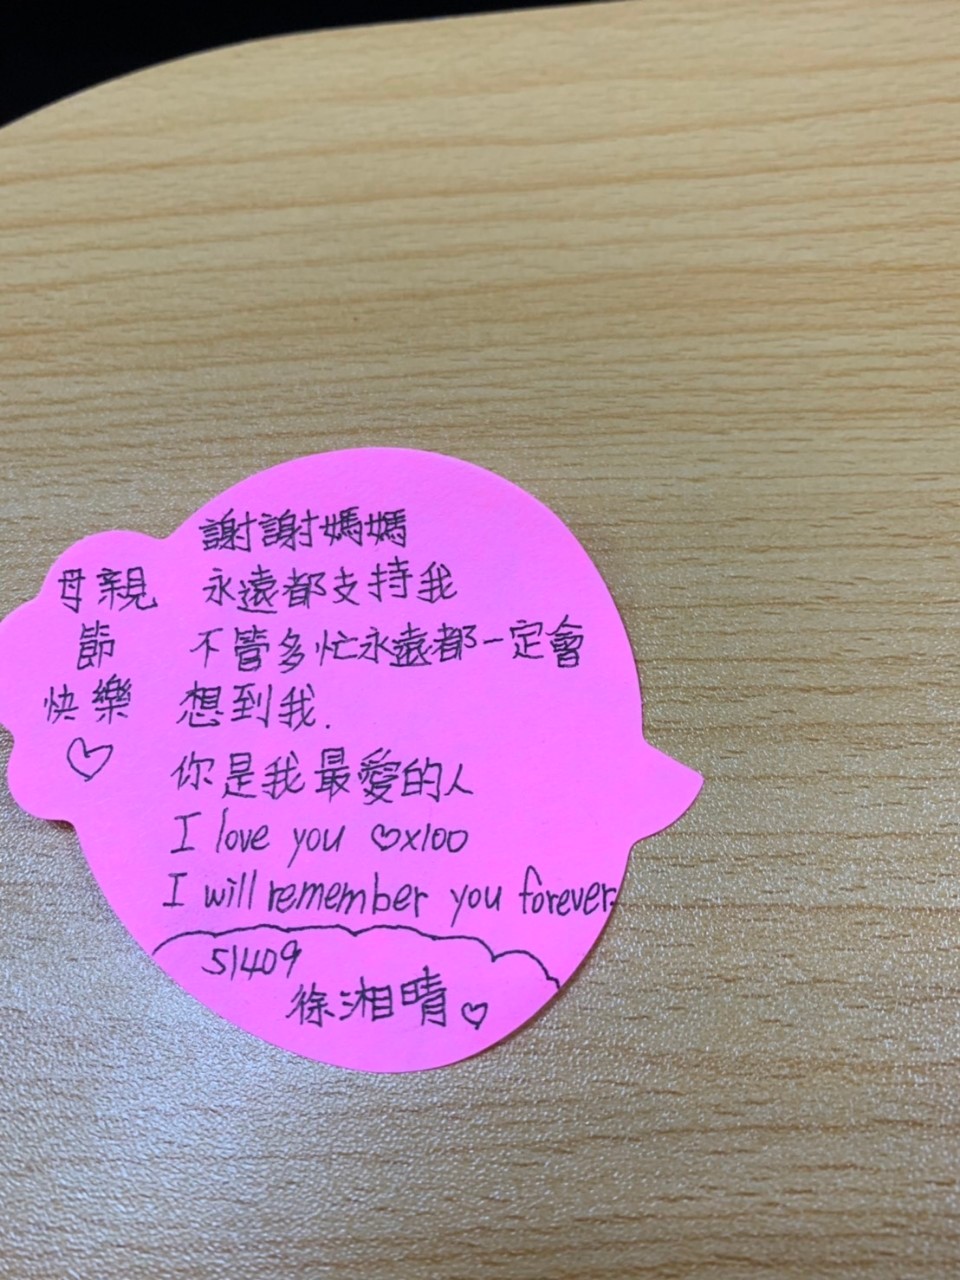 母親
節
快樂
♡
謝謝媽媽
永遠都支持我
不管多忙永遠都一定會
想到我.
你是我最愛的人
I love you ♡x100
I will remember you forever.
51409
徐湘晴♡